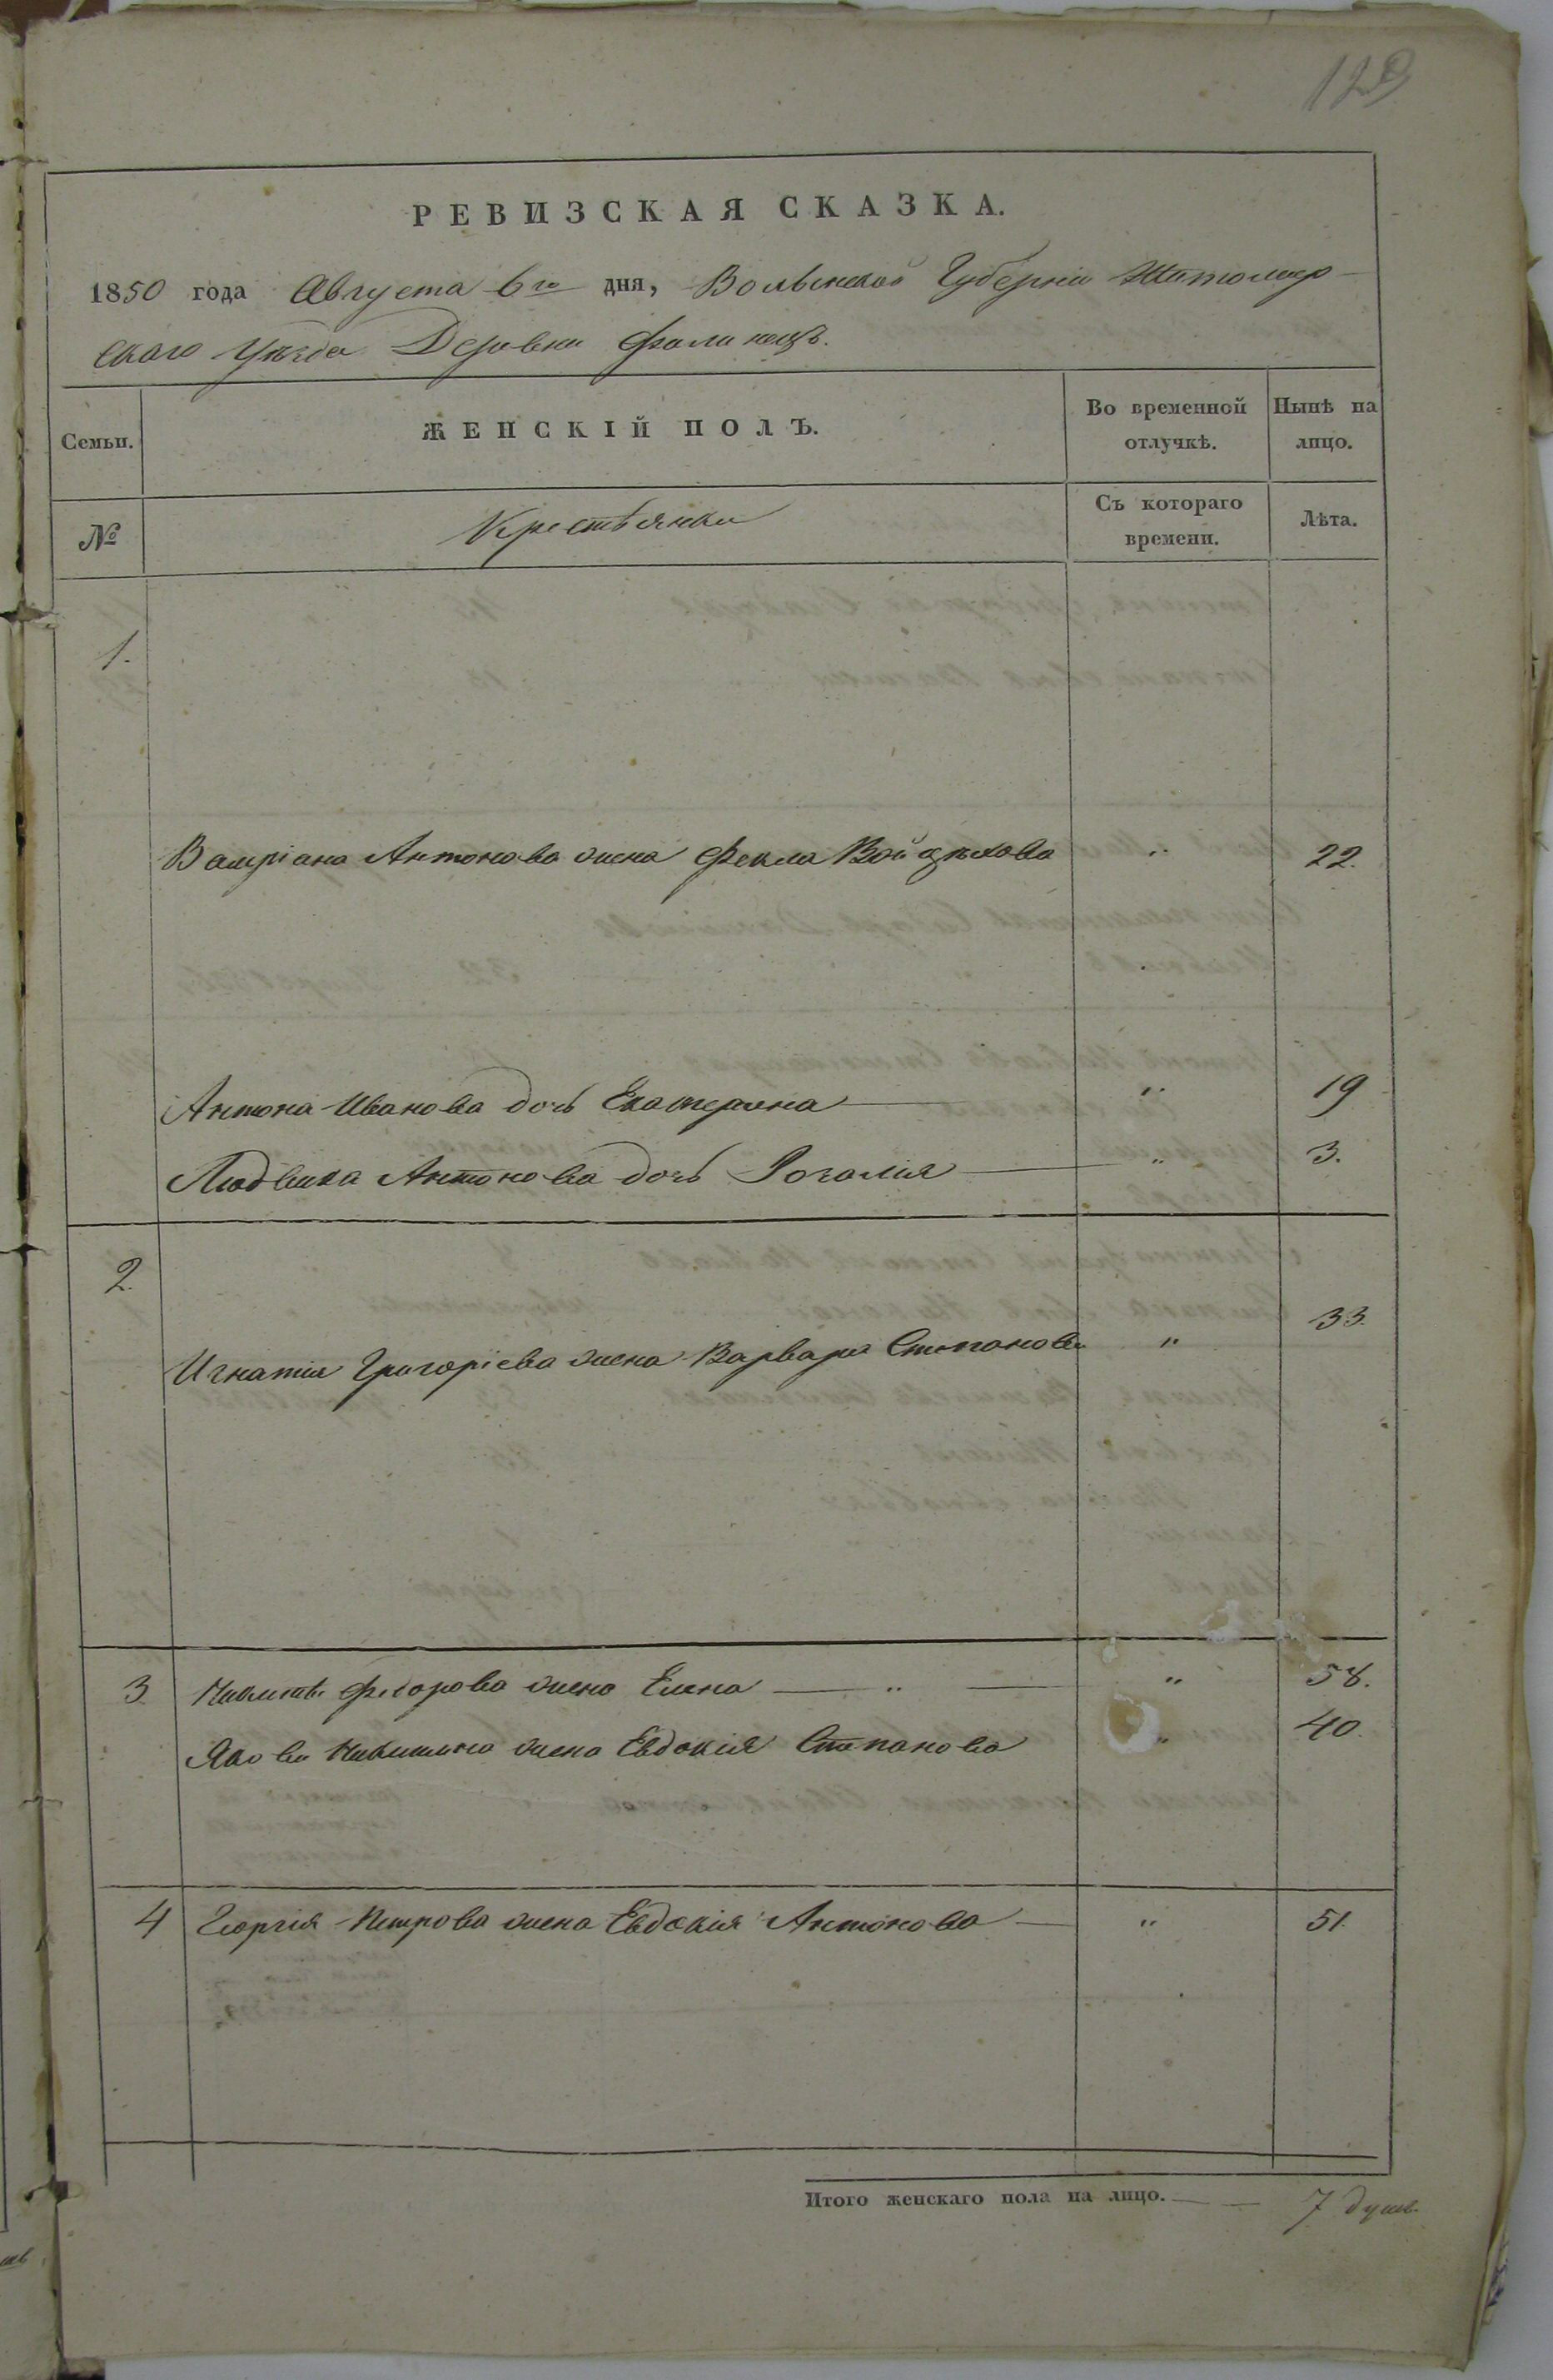 РЕВИЗСКАЯ СКАЗКА.
1850 года Августа 6го дня, Волынской Губерніи Житомир-
скаго Уѣзда Деревни
Семьи. ЖЕНСКІЙ ПОЛЪ. Во временной отлучкѣ. Нынѣ на лицо.
№ Крестьянки Съ котораго времени. Лѣта.
1.
Валеріана Антонова жена Фекла Войцѣхова " 22.
Антона Иванова дочь Екатерина — " 19
Людвика Антонова дочь Розалія — " 3.
2.
Игнатія Григоріева жена Варвара Степанова " 33.
3 Никиты Федорова жена Елена — " — " 58.
Якова Никитина жена Евдокія Степанова " 40.
4 Георгія Петрова жена Евдокія Антонова — " 51.
Итого женскаго пола на лицо. — — 7 душъ.